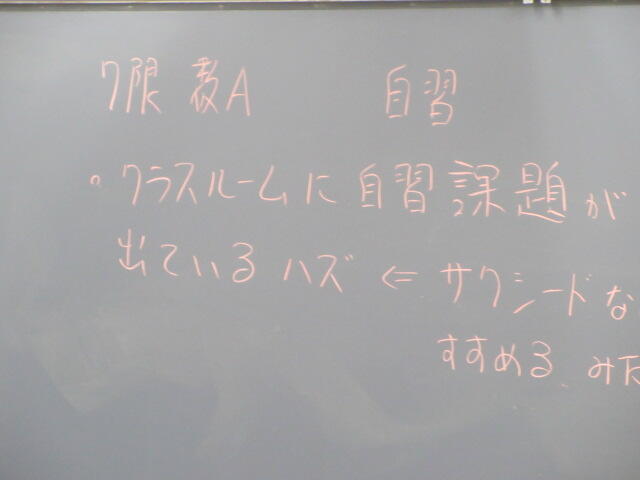 7限 数A 自習
・クラスルームに自習課題が
出ているハズ ⇐ サクシードな
すすめる、み